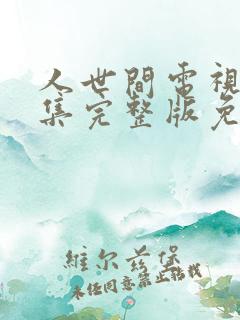 人世間電視
集完整版免
維尔兹堡
未经同意禁止转载